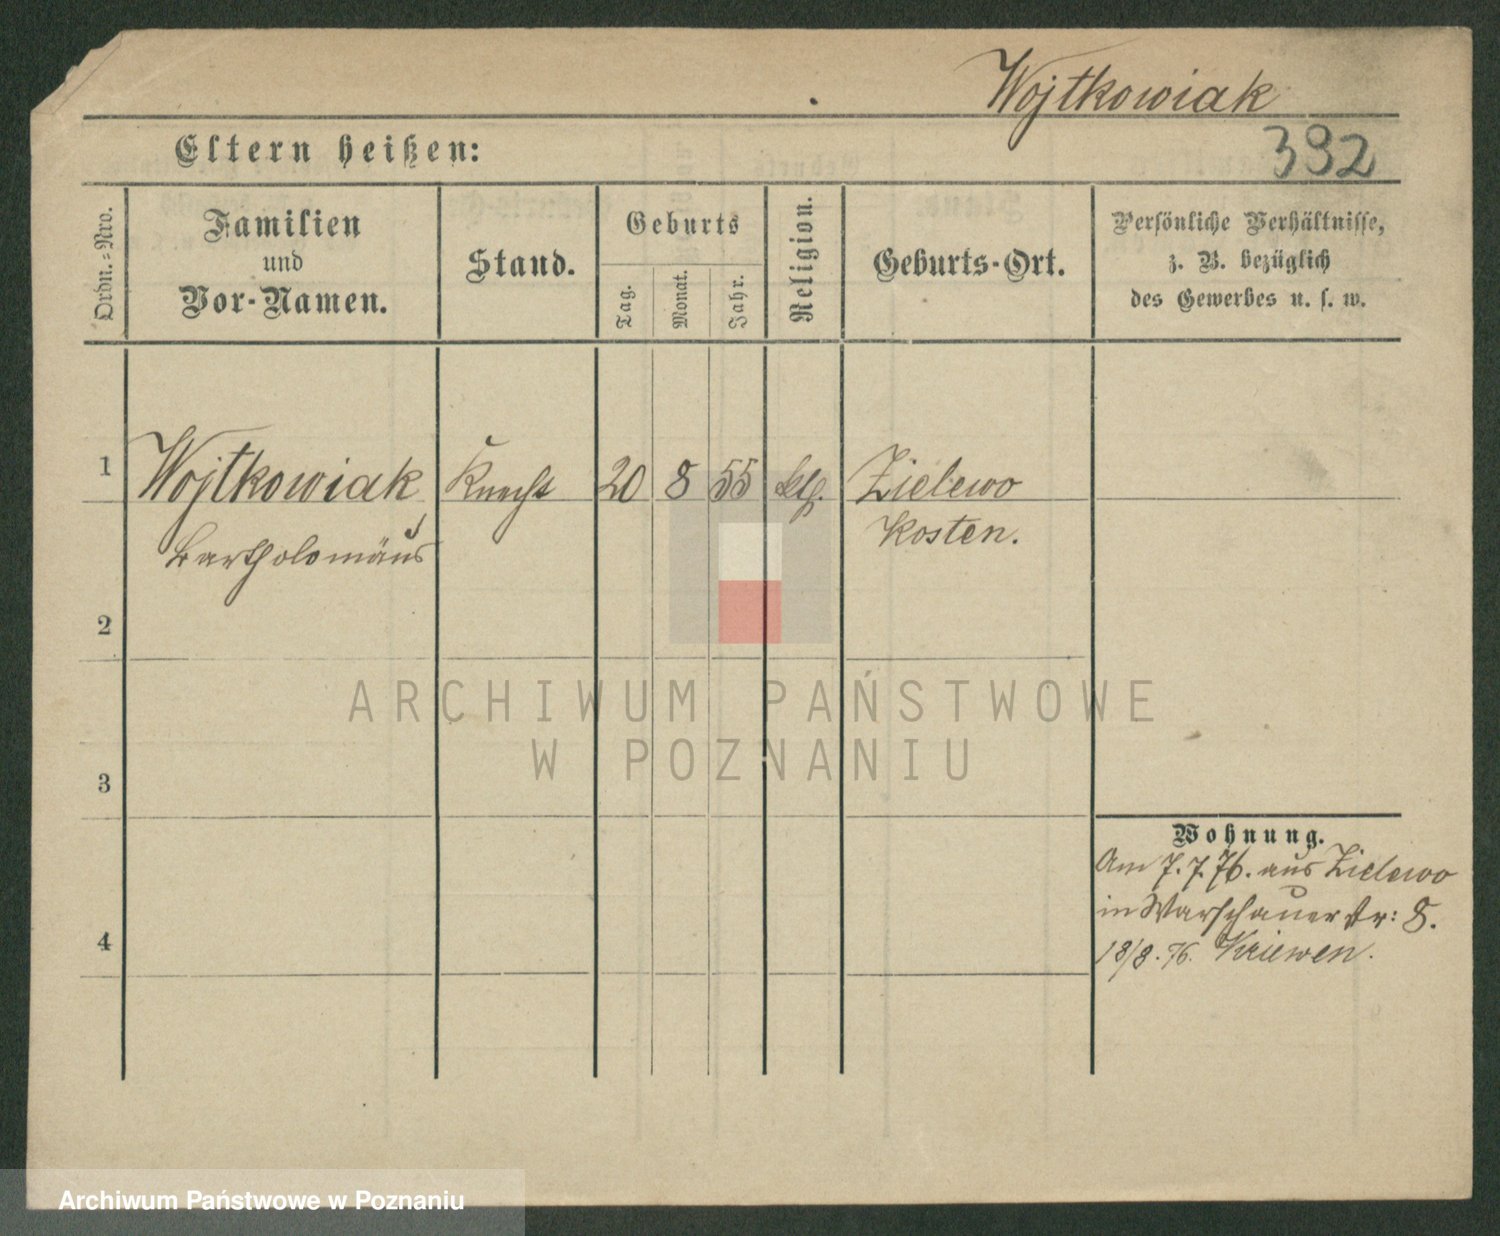 Wojtkowiak
392
Eltern heißen:
Ordn.=Nro.
Familien
und
Vor-Namen.
Stand.
Geburts
Tag.
Monat.
Jahr.
Religion.
Geburts-Ort.
Persönliche Verhältnisse,
z. B. bezüglich
des Gewerbes u. s. w.
1 Wojtkowiak Knecht 20 8 55 Zielewo
Bartholomäus Kosten.
2
3
4
Wohnung.
Am 7.7.76. aus Zielewo
in Warschauer str: 8.
18/8.76. Kriewen.
ARCHIWUM PAŃSTWOWE
W POZNANIU
Archiwum Państwowe w Poznaniu